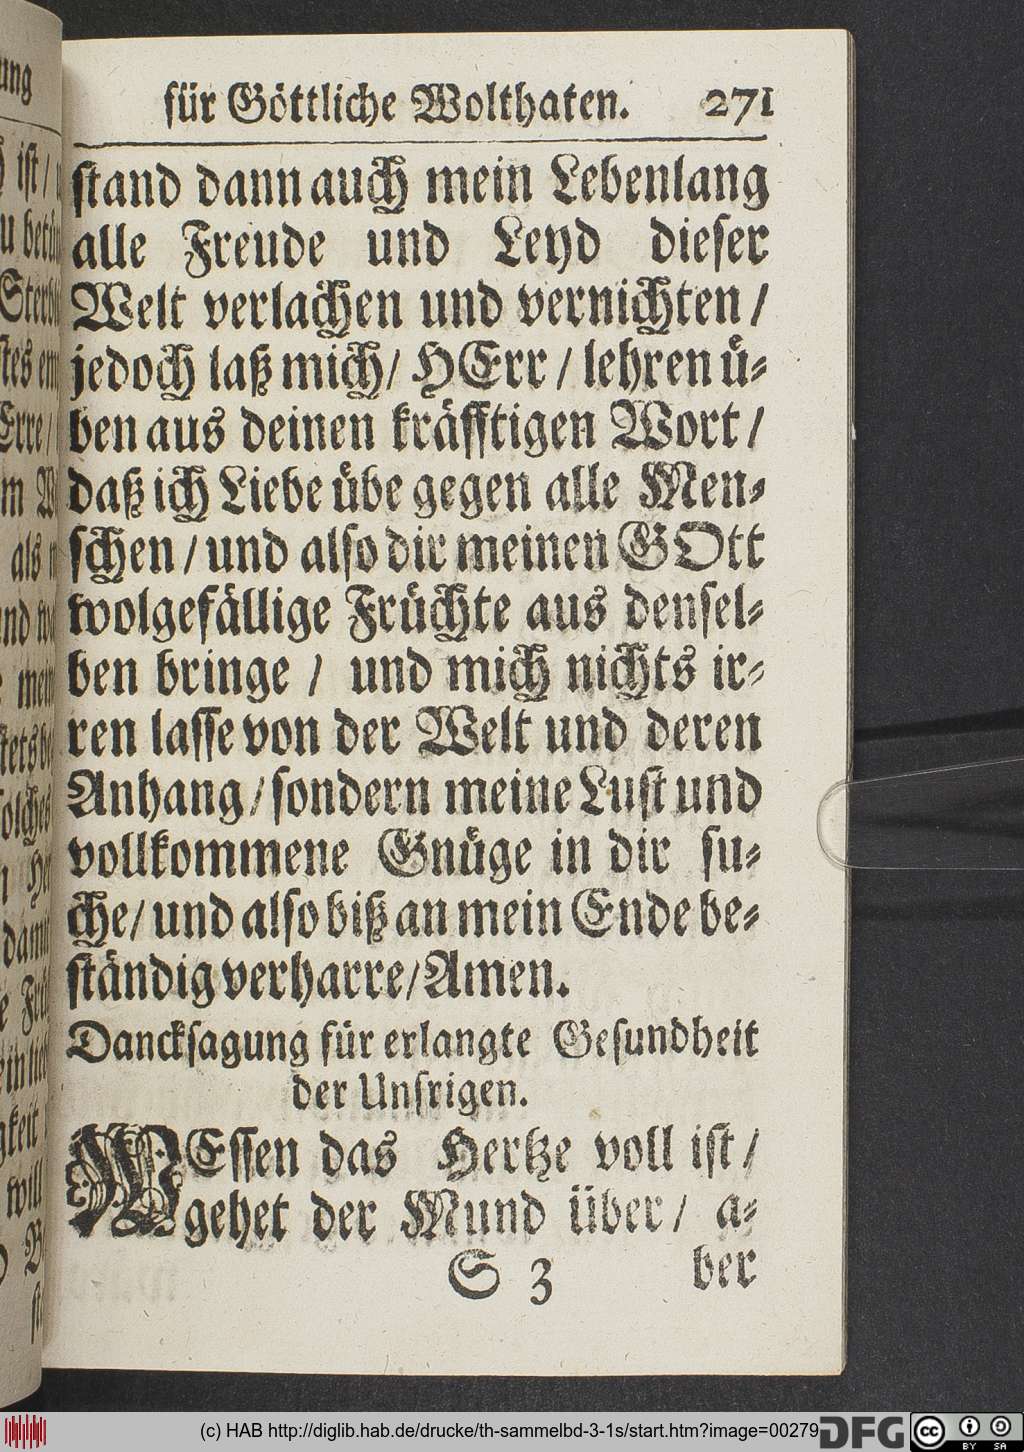 für Göttliche Wolthaten. 271
stand dann auch mein Lebenlang
alle Freude und Leyd dieser
Welt verlachen und vernichten /
jedoch laß mich / HErr / lehren ü-
ben aus deinen kräfftigen Wort /
daß ich Liebe übe gegen alle Men-
schen / und also dir meinen GOtt
wolgefällige Früchte aus densel-
ben bringe / und mich nichts ir-
ren lasse von der Welt und deren
Anhang / sondern meine Lust und
vollkommene Gnüge in dir su-
che / und also biß an mein Ende be-
ständig verharre / Amen.
Dancksagung für erlangte Gesundheit
der Unsrigen.
WEssen das Hertze voll ist /
gehet der Mund über / a-
S 3 ber
(c) HAB http://diglib.hab.de/drucke/th-sammelbd-3-1s/start.htm?image=00279
DFG
cc BY SA